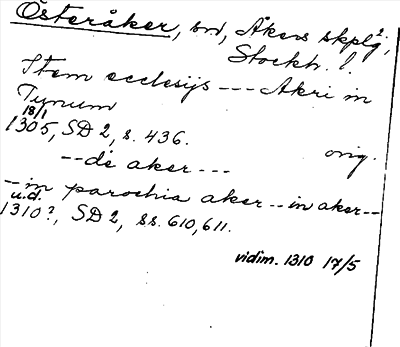 Österåker, sn, Åkers skplg²;
Stockh. l.
Item ecclesijs --- Akri in
Tynum
18/1
1305, SD 2, s. 436. orig.
-- de aker ---
-- in parochia aker -- in aker --
u.d.
1310?, SD 2, ss. 610, 611.
vidim. 1310 17/5